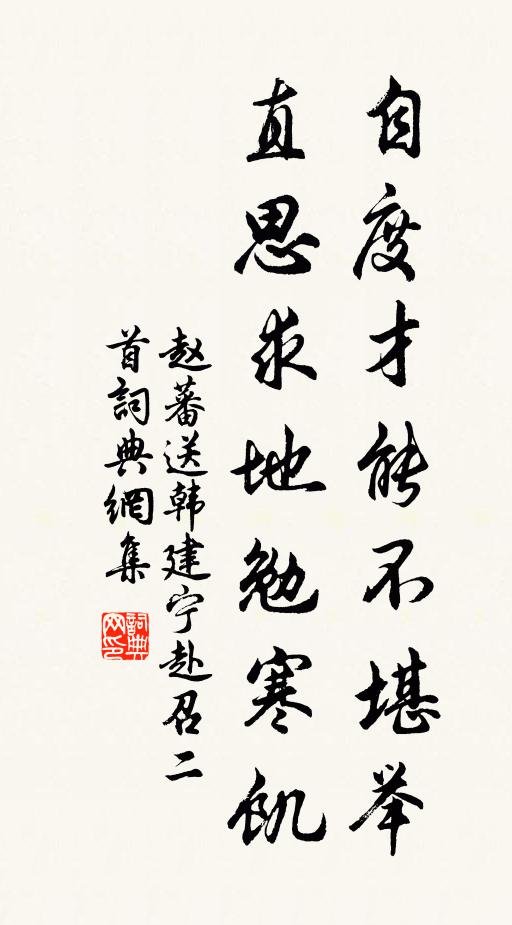 自度才能不堪举
直思求地勉寒飢
赵蕃送韩建宁赴召二
首詞典網集
詞典网印